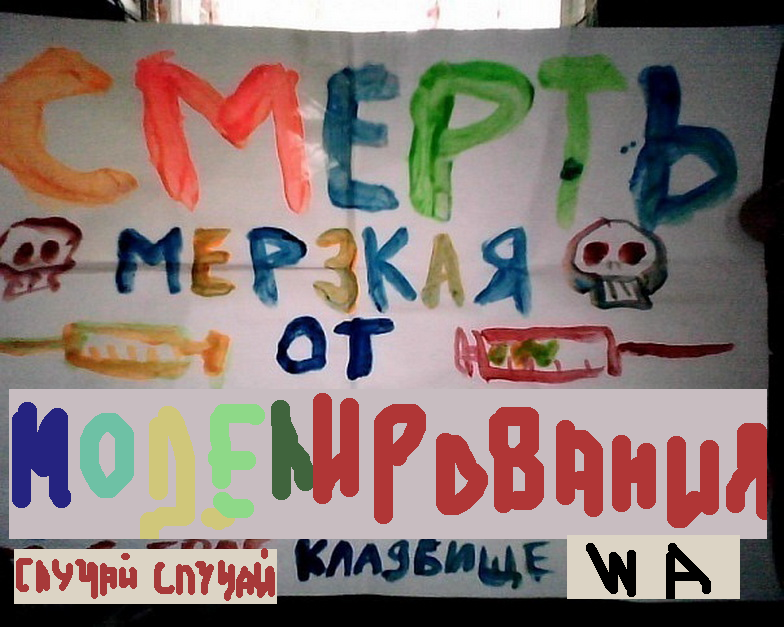 СМЕРТЬ
МЕРЗКАЯ
ОТ
МОДЕЛИРОВАНИЯ
СЛУЧАЙ СЛУЧАЙ КЛАДБИЩЕ WA